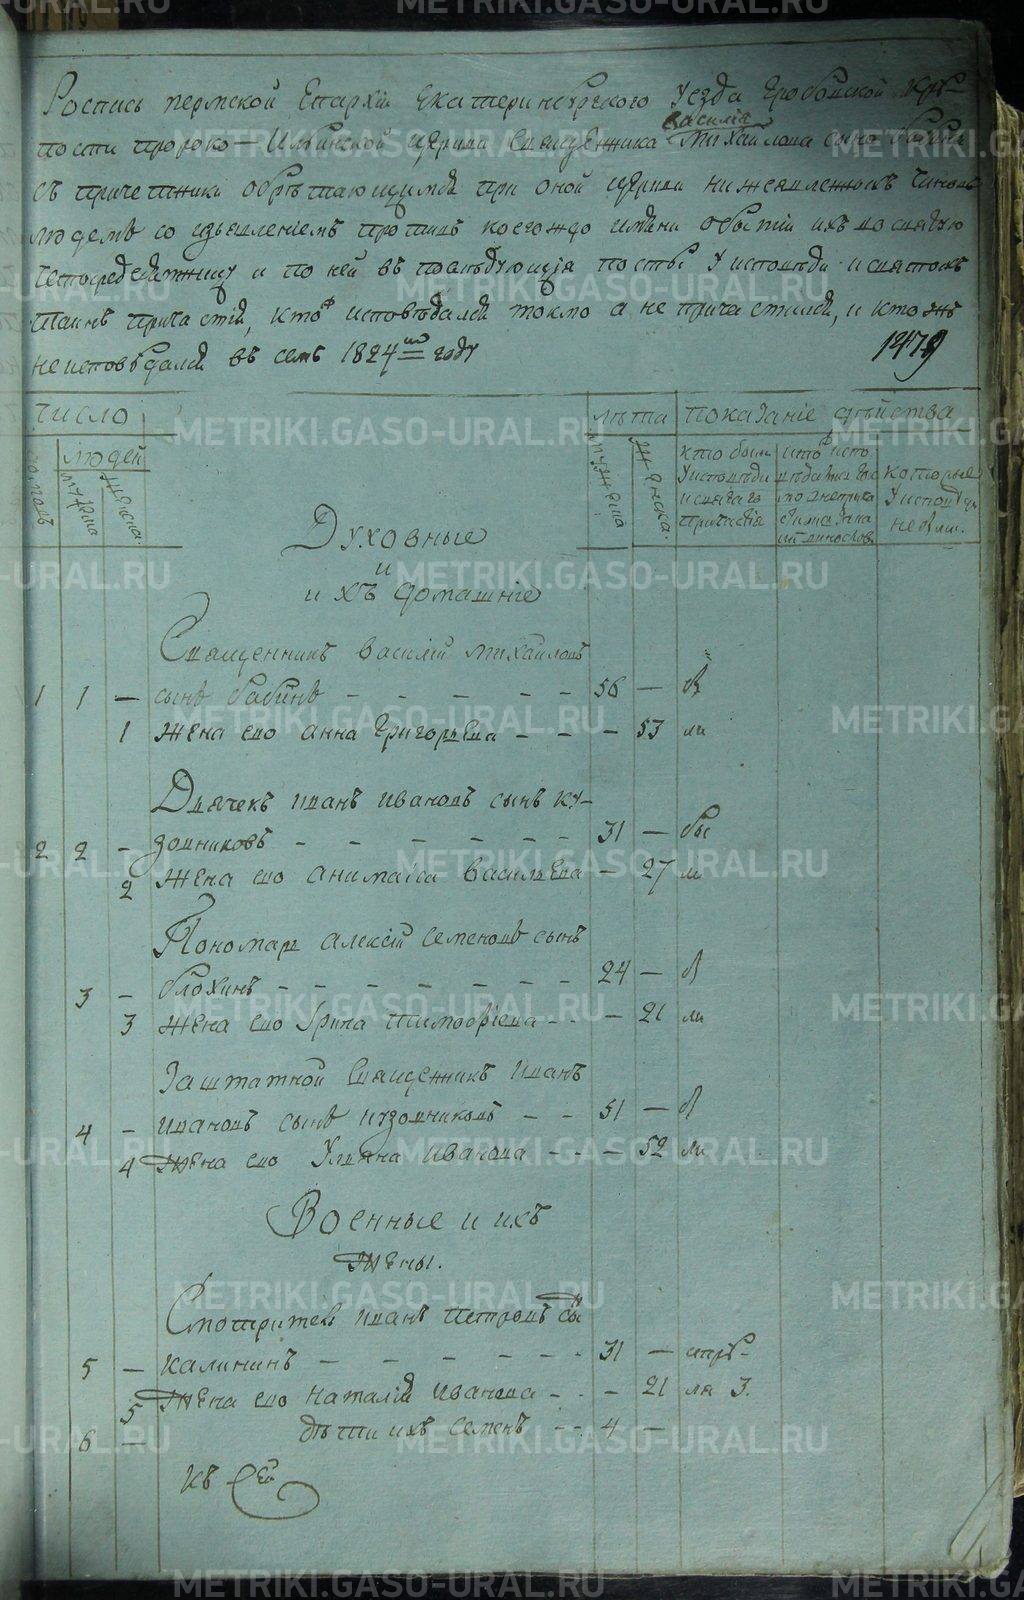 Роспись пермской Епархiи Екатеринбургского Уезда Гробовской крѣ-
пости пророко-Ильинской церкви Священника Василiя Михайлова сына Бабина
съ причетники обрѣтающимися при оной церкви нижеявленныхъ чиновъ
людемъ со изъявленiемъ противъ коегождо имѣни о бытiи ихъ во святую
четыредесятницу и по ней въ послѣдующiя посты У исповѣди и святыхъ
таинъ причастiя, кто исповѣдался токмо а не причастился, и кто жъ
неисповѣдался въ семъ 1824мъ году 1479
число лѣта показанiе дѣйства
людей
мужеска женска
мужеска женска.
кто были У исповѣди и святаго причастiя
которые У исповѣди не были.
Духовные
и
ихъ домашнiе
Священникъ Василiй Михайловъ
1 1 — сынъ бабинъ 56 — б
1 Жена ево Анна Григорьева — 53 ли
Дьячекъ Иванъ Ивановъ сынъ ку-
2 2 — зовниковъ 31 — бы
2 Жена ево Анимаиса Васильева — 27 ли
Пономарь Алексiй Семеновъ сынъ
3 — блохинъ 24 — б
3 Жена ево Ирина Тимофѣева — 21 ли
Заштатной Священникъ Иванъ
4 — Ивановъ сынъ кузовниковъ 51 — б
4 Жена ево Ульяна Иванова — 52 ли
Военные и ихъ
жены.
Смотритель Иванъ Петровъ сынъ
5 — калининъ 31 —
5 Жена ево Наталiя Иванова — 21 ля 3.
6 — дѣти ихъ Семенъ 4 —
къ сей
METRIKI.GASO-URAL.RU